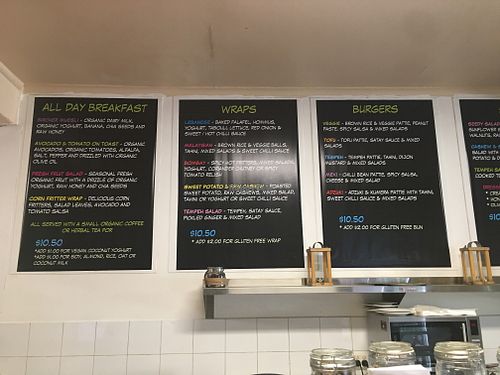 ALL DAY BREAKFAST
BIRCHER MUESLI - ORGANIC DAIRY MILK,
ORGANIC YOGHURT, BANANA, CHIA SEEDS AND
RAW HONEY
AVOCADO & TOMATO ON TOAST - ORGANIC
AVOCADOS, ORGANIC TOMATOES, ALFALFA,
SALT, PEPPER AND DRIZZLED WITH ORGANIC
OLIVE OIL
FRESH FRUIT SALAD - SEASONAL FRESH
ORGANIC FRUIT WITH A DRIZZLE OF ORGANIC
YOGHURT, RAW HONEY AND CHIA SEEDS
CORN FRITTER WRAP - DELICIOUS CORN
FRITTERS, SALAD LEAVES, AVOCADO AND
TOMATO SALSA
ALL SERVED WITH A SMALL ORGANIC COFFEE
OR HERBAL TEA FOR
$10.50
* ADD $1.00 FOR VEGAN COCONUT YOGHURT
* ADD $1.00 FOR SOY, ALMOND, RICE, OAT OR
COCONUT MILK
WRAPS
LEBANESE - BAKED FALAFEL, HOMMUS,
YOGHURT, TABOULI, LETTUCE, RED ONION &
SWEET / HOT CHILLI SAUCE
MALAYSIAN - BROWN RICE & VEGGIE BALLS,
TAHINI, MIXED SALADS & SWEET CHILLI SAUCE
BOMBAY - SPICY HOT FRITTERS, MIXED SALADS,
YOGHURT, CORIANDER CHUTNEY OR SPICY
TOMATO RELISH
SWEET POTATO & RAW CASHEW - ROASTED
SWEET POTATO, RAW CASHEWS, MIXED SALAD,
TAHINI OR YOGHURT OR SWEET CHILLI SAUCE
TEMPEH SALAD - TEMPEH, SATAY SAUCE,
PICKLED GINGER & MIXED SALAD
$10.50
* ADD $2.00 FOR GLUTEN FREE WRAP
BURGERS
VEGGIE - BROWN RICE & VEGGIE PATTIE, PEANUT
PASTE, SPICY SALSA & MIXED SALADS
TOFU - TOFU PATTIE, SATAY SAUCE AND MIXED
SALADS
TEMPEH - TEMPEH PATTIE, TAHINI, DIJON
MUSTARD & MIXED SALADS
MEXI - CHILLI BEAN PATTIE, SPICY SALSA,
CHEESE & MIXED SALAD
ADZUKI - ADZUKI & KUMERA PATTIE WITH TAHINI,
SWEET CHILLI SAUCE & MIXED SALADS
$10.50
* ADD $2.00 FOR GLUTEN FREE BUN
SEEDY
SUNFLOWER
CASHEW &
TEMPEH
$10.50